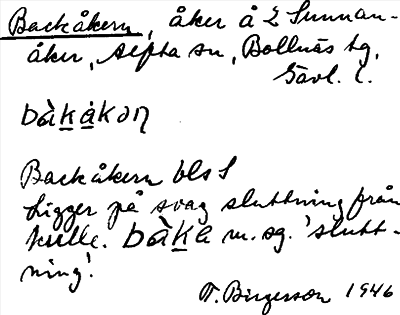 Backåkern, åker å 2 Sunnan-
åker, Alfta sn, Bollnäs tg,
Gävl. l.
bàkåkən
Backåkern bls S
Ligger på svag sluttning från
kulle. bàka m. sg. 'slutt-
ning'.
T. Birgersson 1946